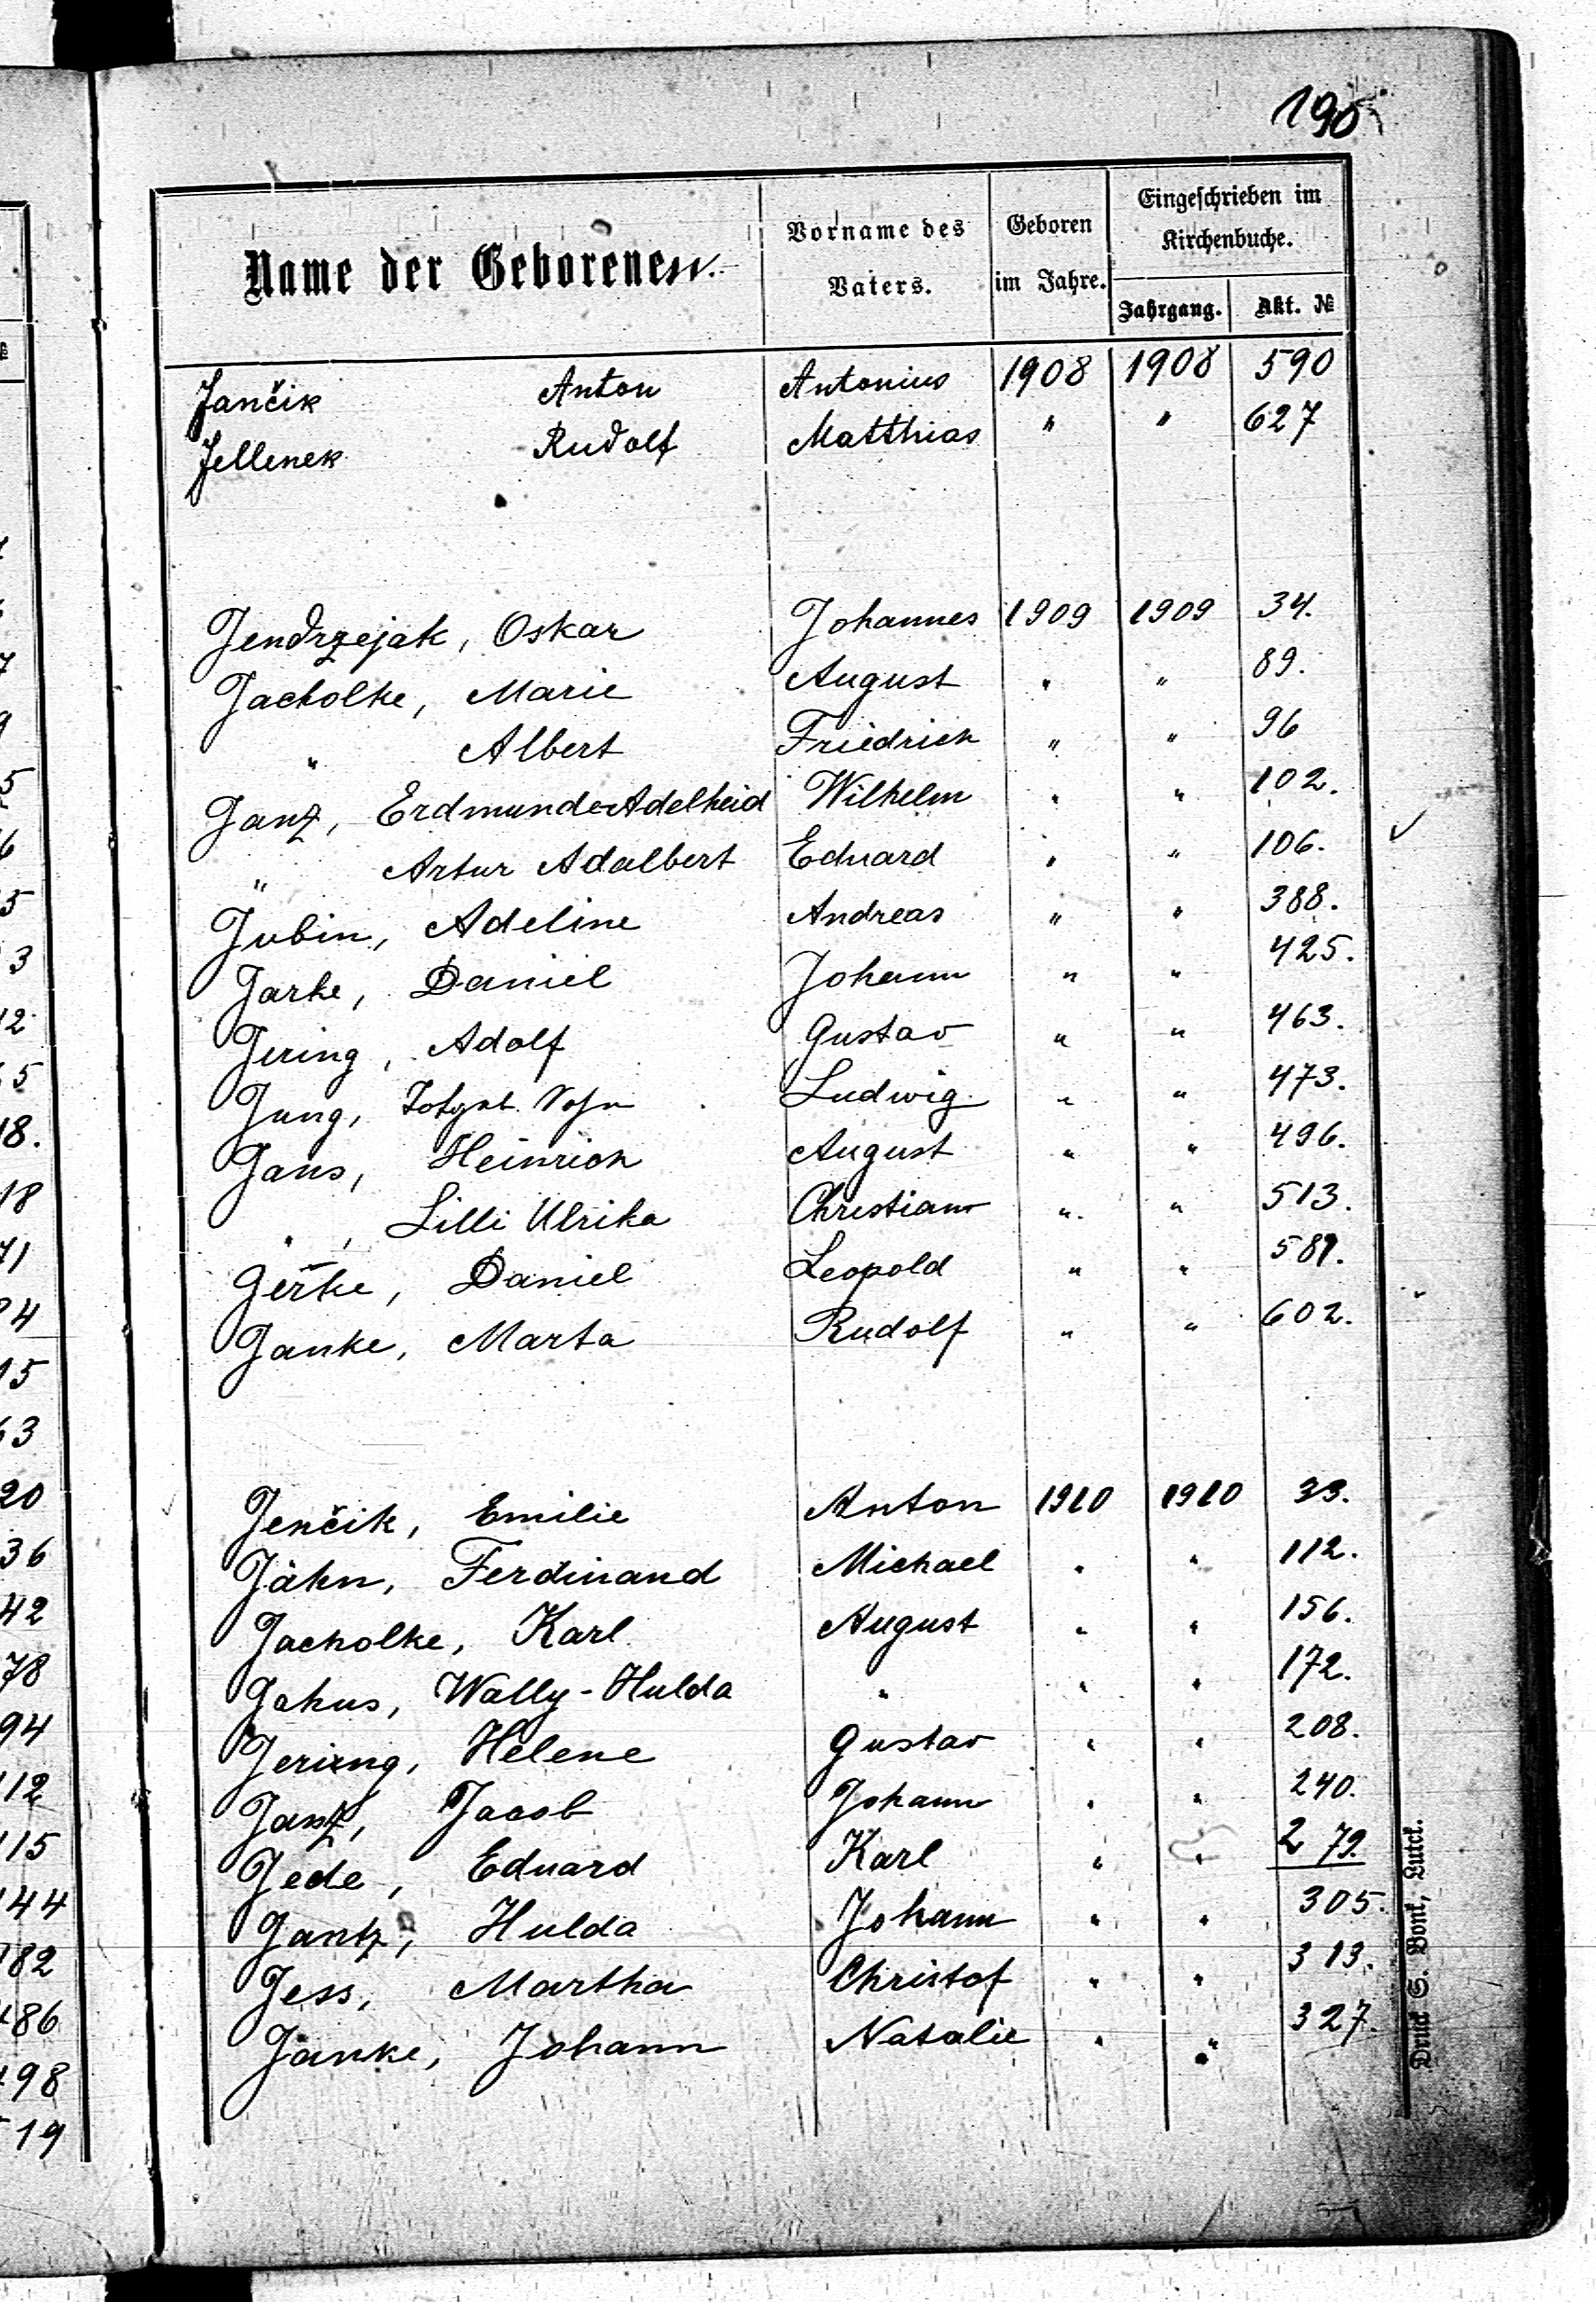 195
Name der Geborenen.
Vorname des Vaters.
Geboren im Jahre.
Eingeschrieben im Kirchenbuche.
Jahrgang. Akt. №
Jančik Anton Antonius 1908 1908 590
Jellenek Rudolf Matthias " " 627
Jendrzejak, Oskar Johannes 1909 1909 34.
Jacholke, Marie August " " 89.
" Albert Friedrich " " 96
Janz, Erdmunde Adelheid Wilhelm " " 102.
" Artur Adalbert Eduard " " 106.
Jubin, Adeline Andreas " " 388.
Jarke, Daniel Johann " " 425.
Jering, Adolf Gustav " " 463.
Jung, Totgeb. Sohn Ludwig " " 473.
Jans, Heinrich August " " 496.
", Lilli Ulrika Christian " " 513.
Gerke, Daniel Leopold " " 589.
Janke, Marta Rudolf " " 602.
Jenčik, Emilie Anton 1910 1910 33.
Jähn, Ferdinand Michael " " 112.
Jacholke, Karl August " " 156.
Jahus, Wally-Hulda " " " 172.
Jering, Helene Gustav " " 208.
Janz, Jacob Johann " " 240.
Jede, Eduard Karl " " 279.
Jantz, Hulda Johann " " 305.
Jess, Martha Christof " " 313.
Janke, Johann Natalie " " 327.
Druck S. Bonk, Lutck.
№
5
6
5
3
12
5
18.
18
71
84
15
63
20
36
42
78
94
112
115
144
182
486
498
19